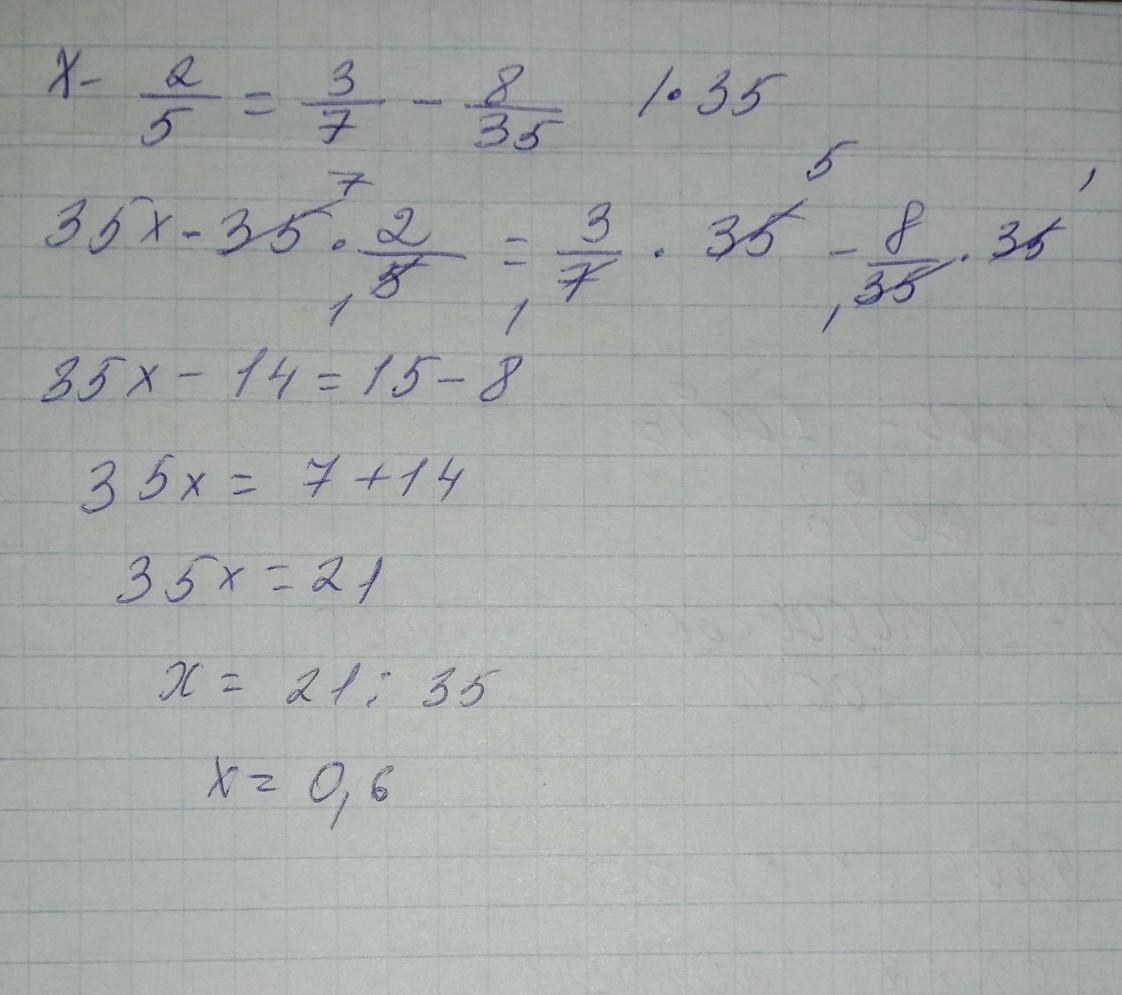 x - 2/5 = 3/7 - 8/35 |·35
35x - 35 7 · 2/5 1 = 3/7 1 · 35 5 - 8/35 1 · 35 1
35x - 14 = 15 - 8
35x = 7 + 14
35x = 21
x = 21 : 35
x = 0,6